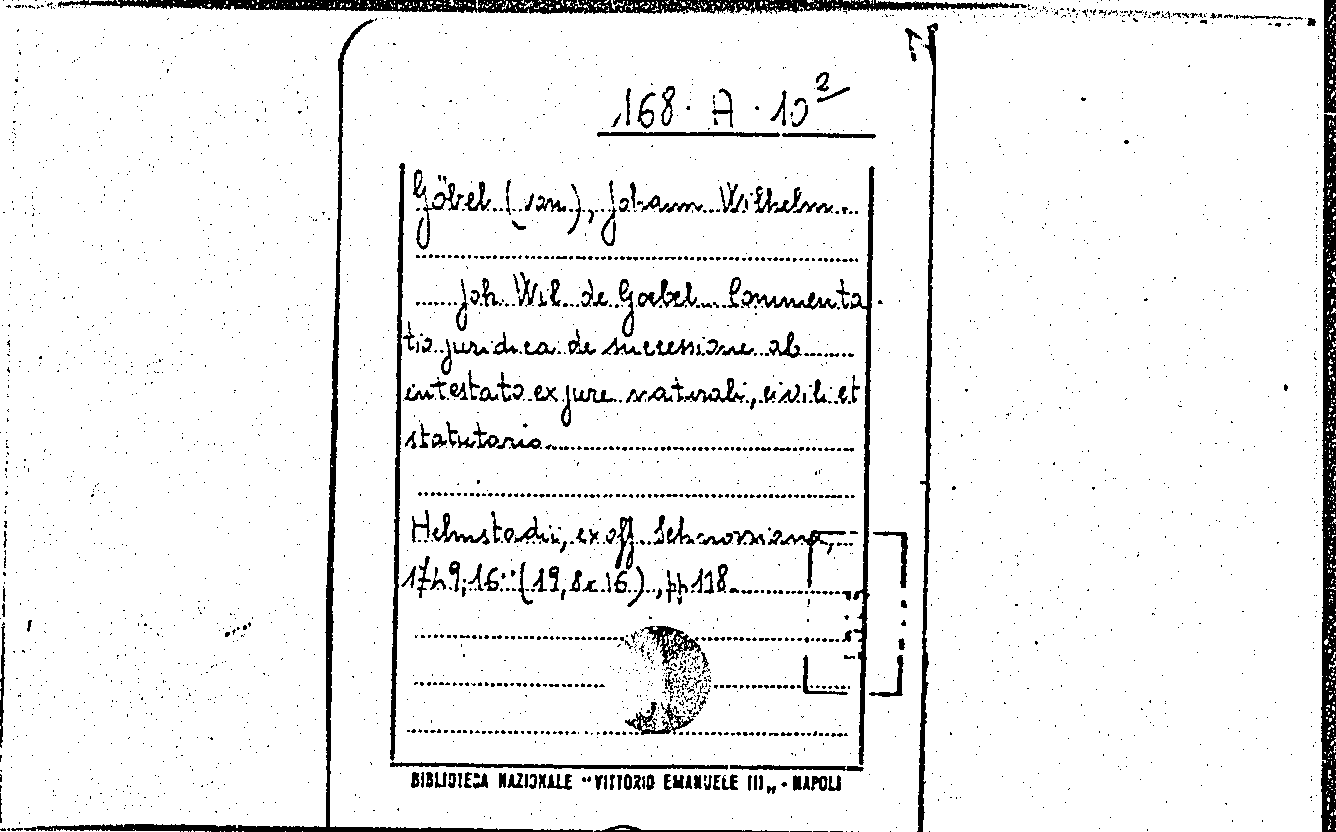 168. A. 10²
Göbel (von), Johann Wilhelm.
Joh. Wil. de Goebel. Commenta
tio juridica de successione ab
intestato ex jure naturali, civili et
statutario.
Helmstadii, ex off. Schnorriana,
1749; 16° (19,8x16), pp 118.
BIBLIOTECA NAZIONALE "VITTORIO EMANUELE III„ - NAPOLI